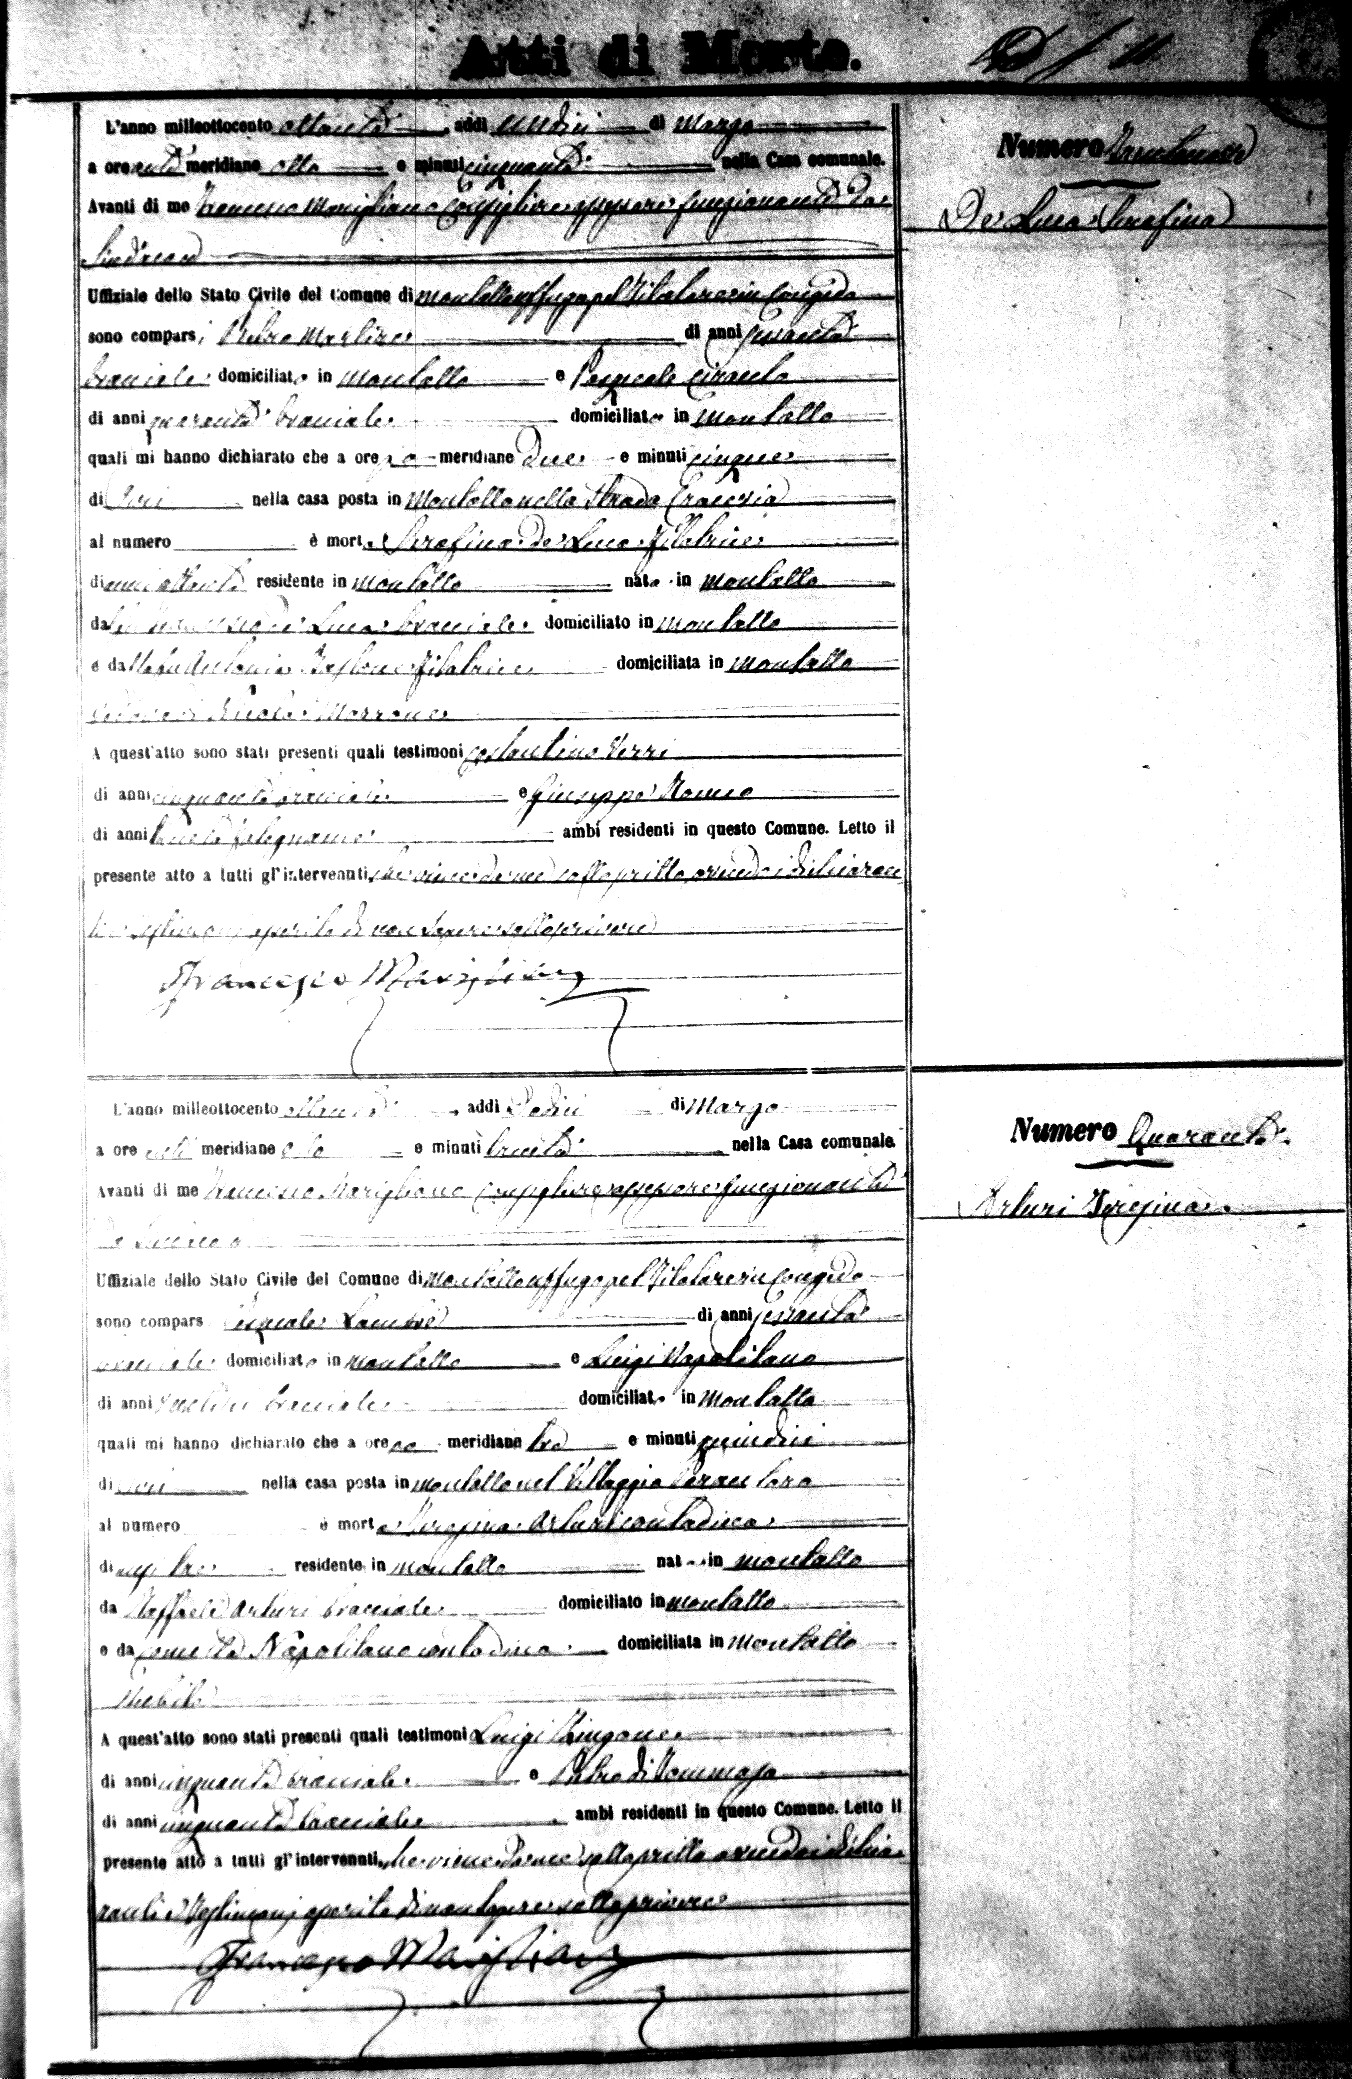 Atti di Morte.
Numero Trentanove
De Luca Serafina
L'anno milleottocento ottanta addì undici di Marzo
a ore anti meridiane otto e minuti cinquanta nella Casa comunale.
Avanti di me Francesco Marigliano Consigliere assessore funzionante da
Sindaco
Uffiziale dello Stato Civile del Comune di Montalto Uffugo pel Titolare in Congedo
sono comparsi Pietro Martire di anni
bracciale domiciliato in Montalto e Pasquale Ciranto
di anni quaranta bracciale domiciliato in Montalto
quali mi hanno dichiarato che a ore po meridiane due e minuti cinque
di Ieri nella casa posta in Montalto nella Strada
al numero è morta Serafina de Luca filatrice
di anni ottanta residente in Montalto nata in Montalto
da fu de Luca bracciale domiciliato in Montalto
e da Antonia filatrice domiciliata in Montalto
Morrone
A quest'atto sono stati presenti quali testimoni Costantino Verri
di anni cinquanta bracciale e Giuseppe
di anni trenta falegname ambi residenti in questo Comune. Letto il
presente atto a tutti gl'intervenuti che viene da me sottoscritto avendo i dichiaran
ti e testimoni asserito di non sapere sottoscrivere
Francesco Marigliano
Numero Quaranta
Arturi Teresina
L'anno milleottocento ottanta addì Dodici di Marzo
a ore anti meridiane otto e minuti trenta nella Casa comunale.
Avanti di me Francesco Marigliano Consigliere assessore funzionante
da Sindaco
Uffiziale dello Stato Civile del Comune di Montalto Uffugo pel Titolare in Congedo
sono compars Pasquale di anni
bracciale domiciliato in Montalto e Luigi Napolitano
di anni bracciale domiciliato in Montalto
quali mi hanno dichiarato che a ore po meridiane tre e minuti quindici
di ieri nella casa posta in Montalto nel Villaggio
al numero è morta Teresina Arturi contadina
di mesi tre residente in Montalto nat in Montalto
da Raffaele Arturi bracciale domiciliato in Montalto
e da Napolitano contadina domiciliata in Montalto
Nubile
A quest'atto sono stati presenti quali testimoni Luigi
di anni cinquanta bracciale e Pietro di Tommaso
di anni cinquanta bracciale ambi residenti in questo Comune. Letto il
presente atto a tutti gl'intervenuti che viene da me sottoscritto avendo i dichia
ranti e testimoni asserito di non sapere sottoscrivere
Francesco Marigliano